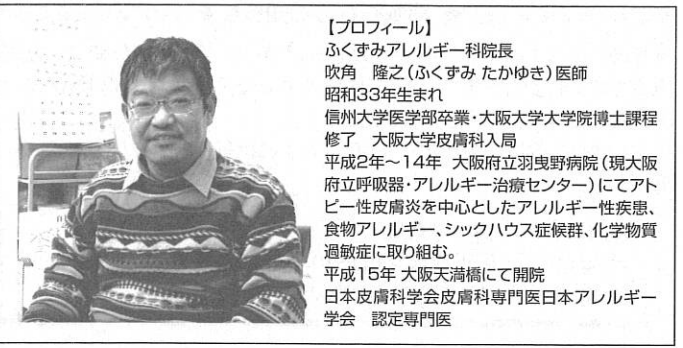 【プロフィール】
ふくずみアレルギー科院長
吹角　隆之（ふくずみ たかゆき）医師
昭和33年生まれ
信州大学医学部卒業・大阪大学大学院博士課程
修了　大阪大学皮膚科入局
平成2年～14年　大阪府立羽曳野病院（現大阪
府立呼吸器・アレルギー治療センター）にてアト
ピー性皮膚炎を中心としたアレルギー性疾患、
食物アレルギー、シックハウス症候群、化学物質
過敏症に取り組む。
平成15年 大阪天満橋にて開院
日本皮膚科学会皮膚科専門医日本アレルギー
学会　認定専門医